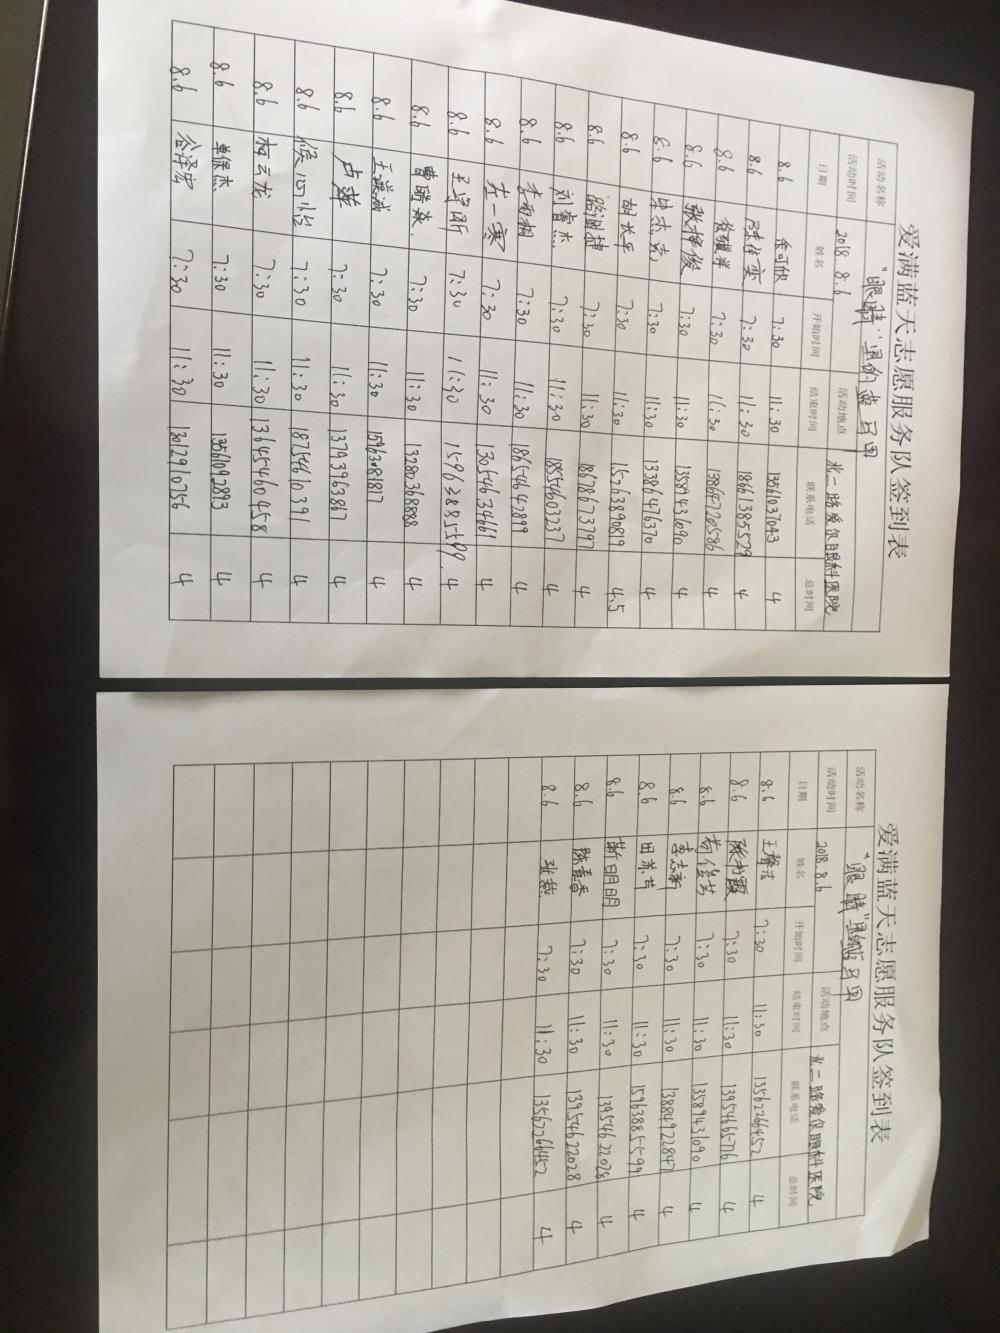 爱满蓝天志愿服务队签到表
活动名称 "眼睛"里的蓝马甲
活动时间 2018.8.6 活动地点 北二路爱尔眼科医院
日期 姓名 开始时间 结束时间 联系电话 总时间
8.6 余可欣 7:30 11:30 13561037043 4
8.6 陈佳雯 7:30 11:30 18661385529 4
8.6 徐继祥 7:30 11:30 13864720586 4
8.6 耿坤俊 7:30 11:30 13589431090 4
8.6 宋杰克 7:30 11:30 13386476370 4
8.6 胡长平 7:30 11:30 15763890819 4.5
8.6 路淑捷 7:30 11:30 18678673797 4
8.6 刘睿杰 7:30 11:30 18554603237 4
8.6 李雨桐 7:30 11:30 18654647899 4
8.6 左一寒 7:30 11:30 13054634661 4
8.6 王学昕 7:30 11:30 15963885599. 4
8.6 曹晴波. 7:30 11:30 13280368888 4
8.6 王端诚 7:30 11:30 15963081817 4
8.6 卢萍 7:30 11:30 13793963867 4
8.6 侯 7:30 11:30 18754610391 4
8.6 柯云龙 7:30 11:30 13645460458 4
8.6 单保杰 7:30 11:30 13561092893 4
8.6 谷泽宏 7:30 11:30 13012910756 4
爱满蓝天志愿服务队签到表
活动名称 "眼睛"里的蓝马甲
活动时间 2018.8.6 活动地点 北二路爱尔眼科医院
日期 姓名 开始时间 结束时间 联系电话 总时间
8.6 王馨洁 7:30 11:30 13562266452 4
8.6 陈书霞 7:30 11:30 13954665716 4
8.6 苟俊芳 7:30 11:30 13589431090 4
8.6 李志新 7:30 11:30 13884922847 4
8.6 田燕芹 7:30 11:30 15963885599 4
8.6 靳明明 7:30 11:30 13954622028 4
8.6 陈青香 7:30 11:30 13954622028 4
8.6 张慧 7:30 11:30 13562266452 4